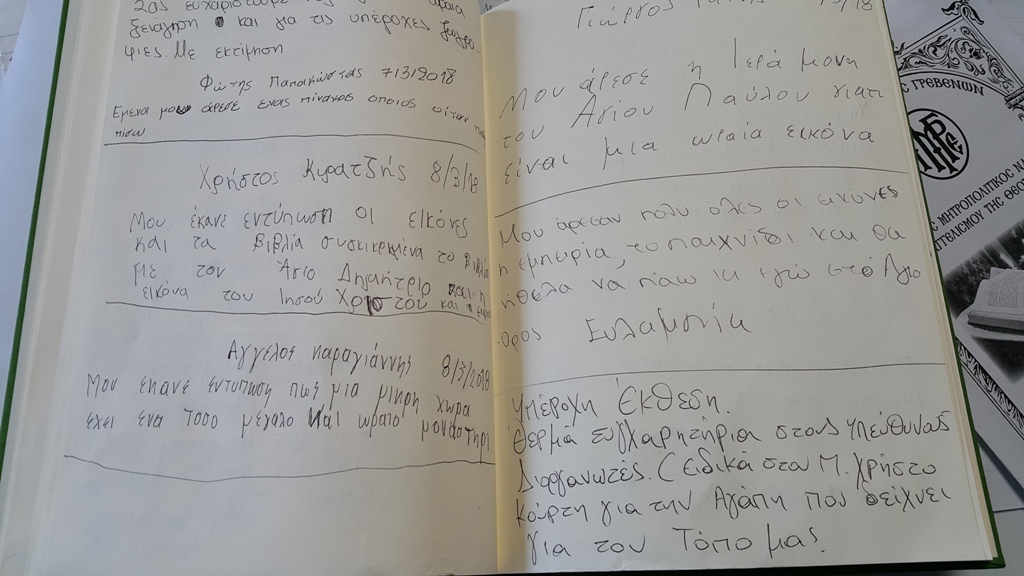 Σας ευχαριστούμε
ξενάγηση και για τις υπέροχες ζωγρα
φιες. Με εκτίμηση
Φώτης Παπακώστας 7/3/2018
Εμενα μου άρεσε ενας πίνακας οποιος
πισω
Χρήστος Κυρατζής 8/3/18
Μου έκανε εντύπωση οι εικόνες
και τα Βιβλία συγκεκριμένα το Βιβλίο
με τον Άγιο Δημήτριο και η
εικόνα του Ιησού Χριστού και
Αγγελος Καραγιάννης 8/3/2018
Μου εκανε εντυπωση πως μια μικρη χωρα
εχει ενα τοσο μεγαλο και ωραιο μοναστηρι
Γιώργος
Μου άρεσε η Ιερά μονη
του Αγίου Παύλου γιατι
είναι μια ωραία εικόνα
Μου άρεσαν πολύ όλες οι εικόνες
η εμπυρία, το παιχνίδι και θα
ήθελα να πάω κι εγώ στο Άγιο
Όρος Ευλαμπία
Υπέροχη Έκθεση.
Θερμά συγχαρητήρια στους Υπεύθυνους
Διοργανωτές. (Ειδικά στον Μ. Χρήστο
Κούρτη για την Αγάπη που δείχνει
για τον Τόπο μας.
ΓΡΕΒΕΝΩΝ
ΜΗΤΡΟΠΟΛΙΤΙΚΟΣ
ΤΗΣ ΘΕΟ